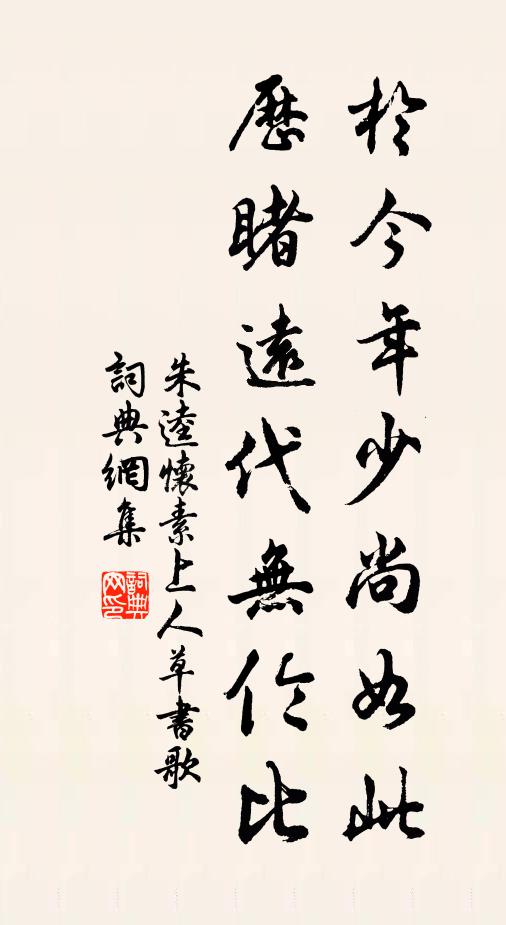 於今年少尚如此
歷睹遠代無伦比
朱逵懷素上人草書歌
詞典網集
詞典網印